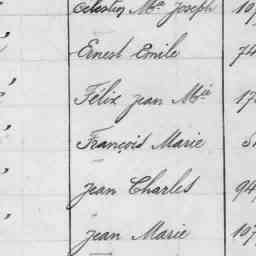 Celestin Mie Joseph 10
" Ernest Emile 74
" Félix jean Mie 17
" François Marie
" jean Charles 94
" jean Marie 107